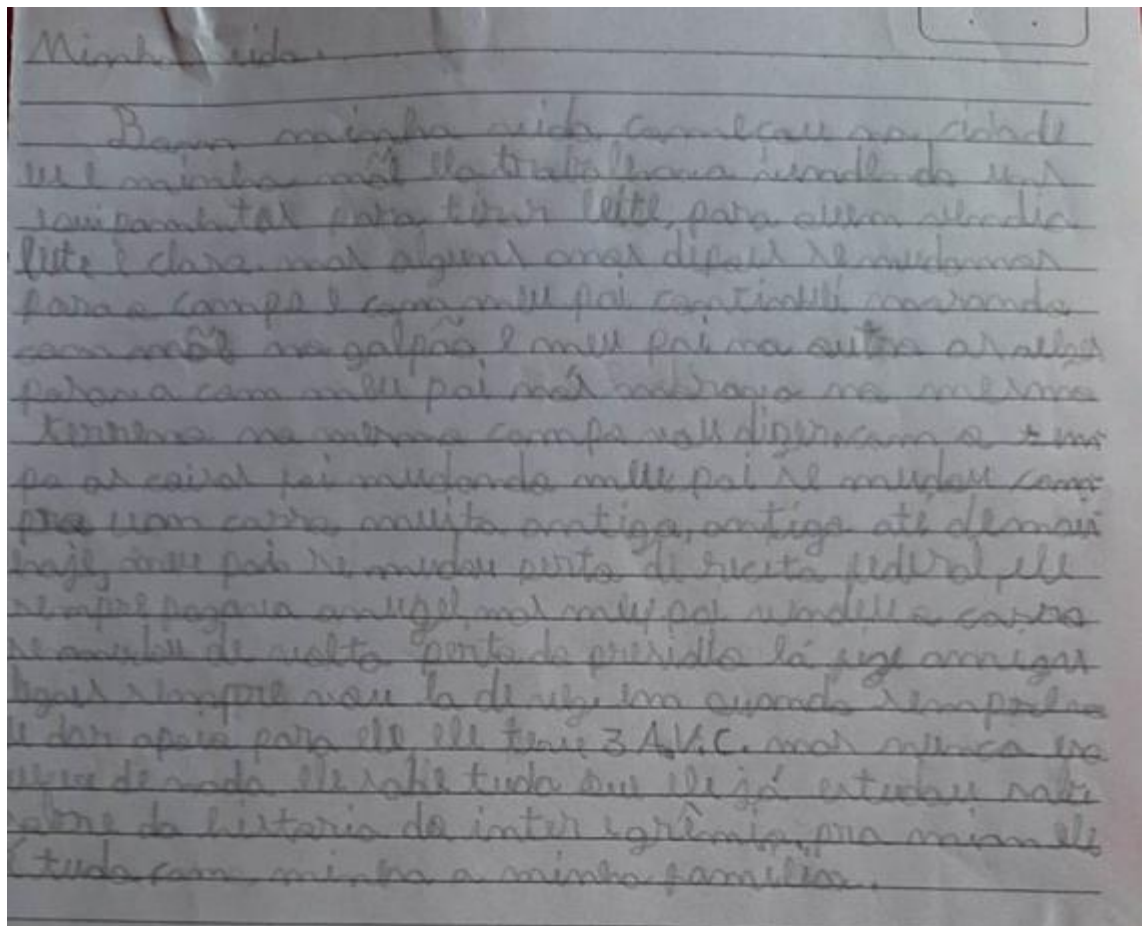 Minha vida
Bom minha vida começou na cidade
e minha mãe ela trabalhava vendendo uns
equipamentos para tirar leite, para quem vendia
leite é claro, mas alguns anos depois se mudamos
para o campo e com meu pai continuei morando
com mãe no galpão e meu pai na outra as vezes
posava com meu pai nós morava no mesmo
terreno no mesmo campo vou dizer com o tem
po as coisas foi mudando meu pai se mudou com
pro uom carro muito antigo, antigo até demais
hoje, meu pai se mudou perto di receita federal, ele
sempre pagava aluguel, mas meu pai vendeu o carro
se mudou de volta perto do presidio lá fize amigos
legais sempre vou la de vez em quando sempre
dar apoio para ele ele teve 3 A.V.C. mas nunca
de nada ele sabe tudo que ele já estudou sabe
sobre da historia do inter e grêmio, pra miam ele
é tudo com minha a minha família.